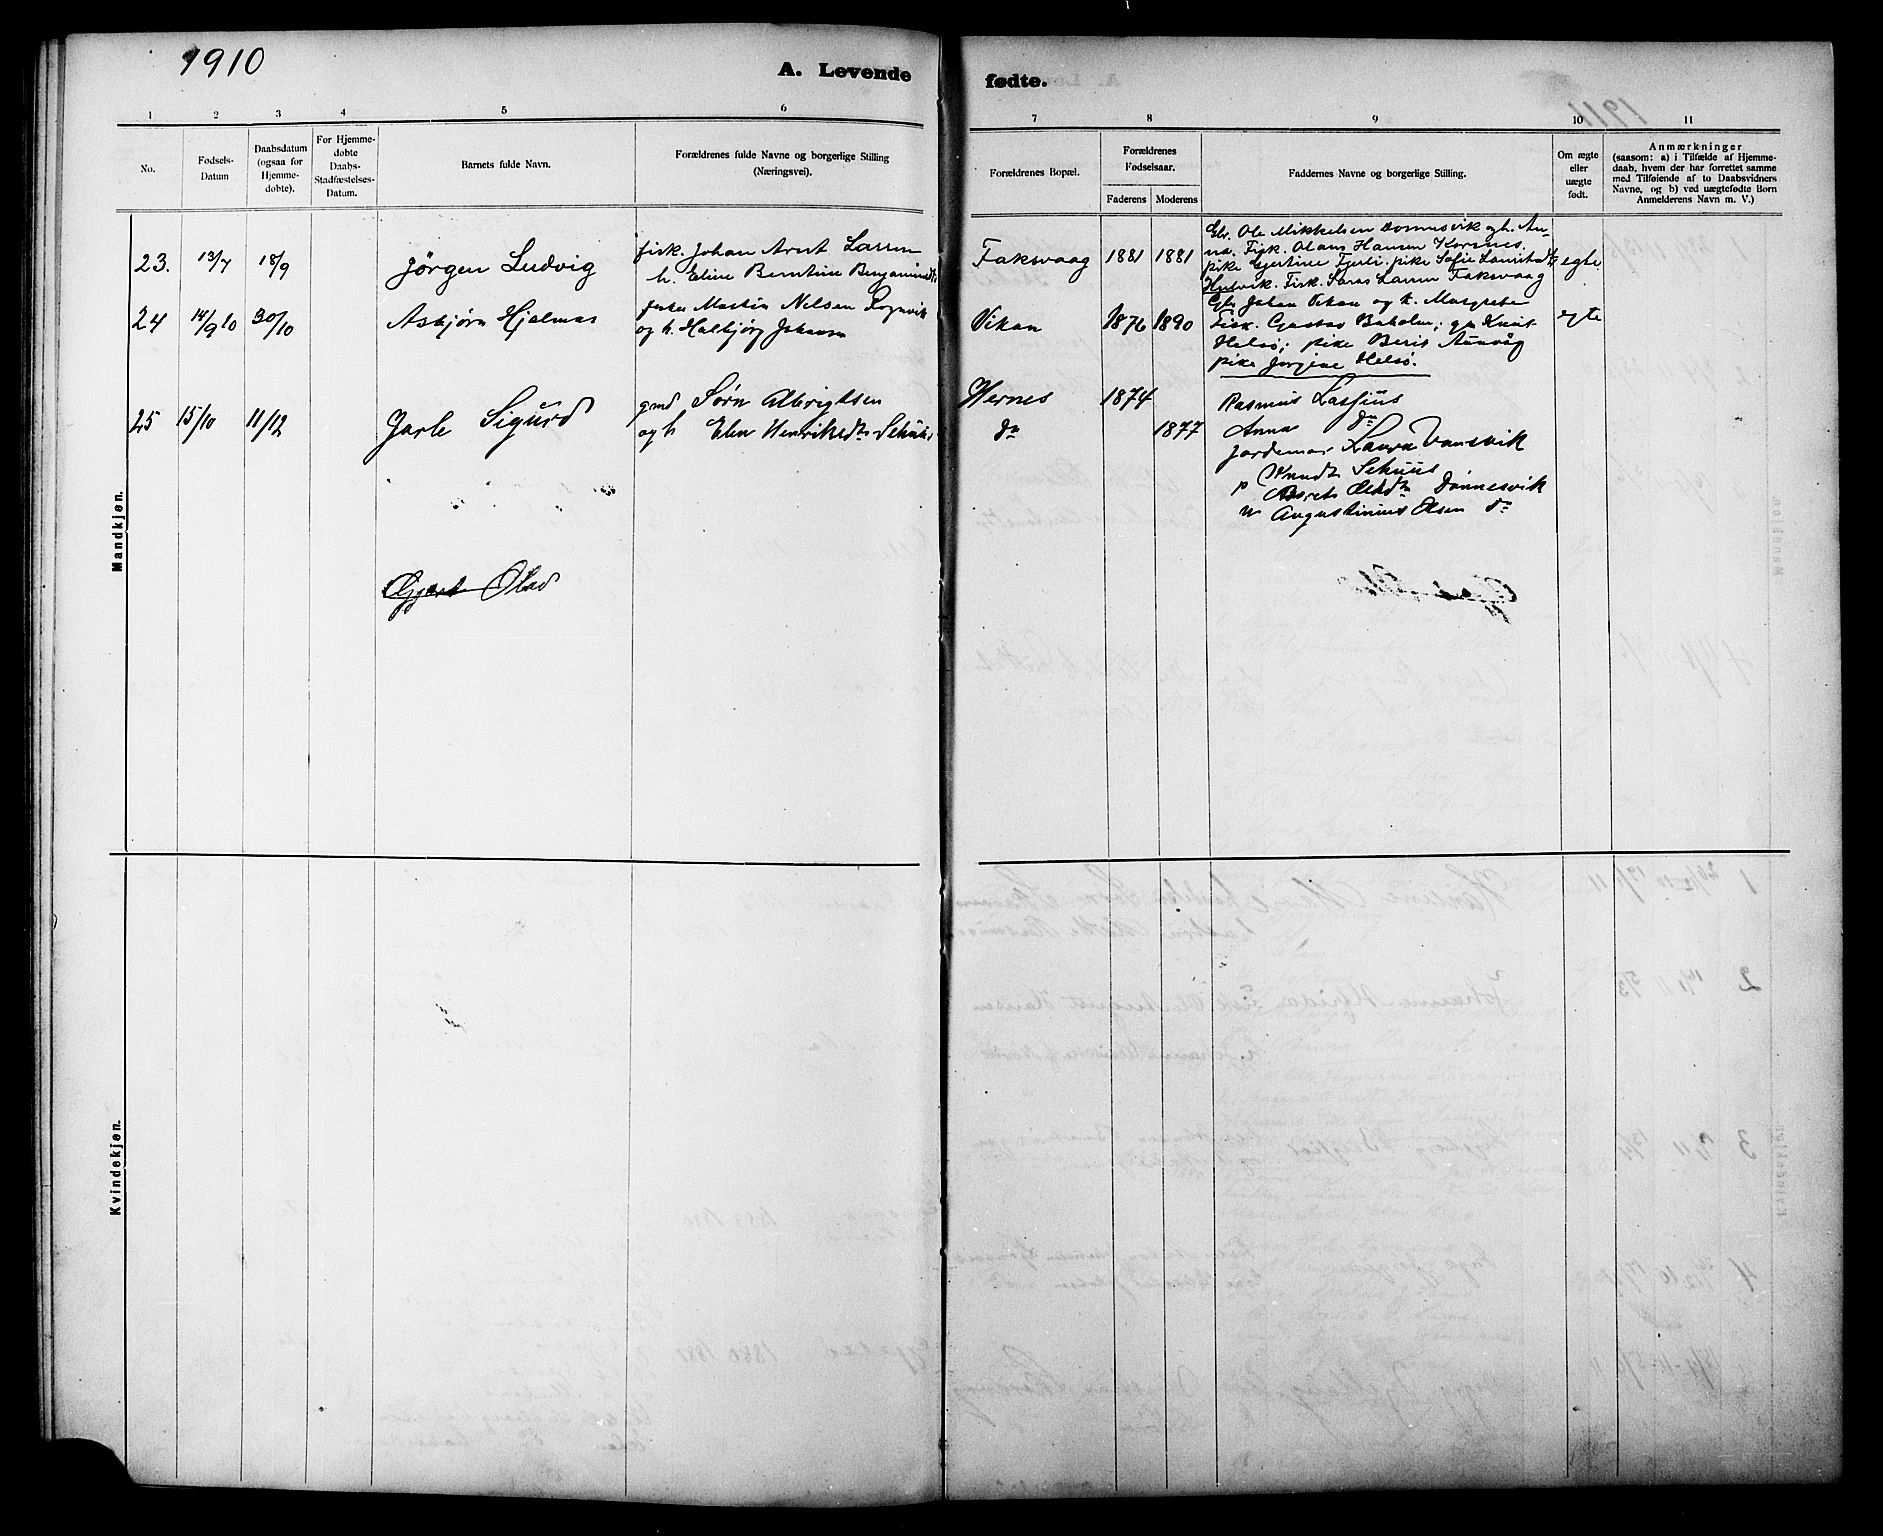 1910
A. Levende fødte.
1 2 3 4 5 6 7 8 9 10 11
No.
Fødsels-
Datum
Daabsdatum
(ogsaa for
Hjemme-
døbte).
For Hjemme-
døbte
Daabs-
Stadfæstelses-
Datum.
Barnets fulde Navn.
Forældrenes fulde Navne og borgerlige Stilling
(Næringsvei).
Forældrenes Bopæl.
Forældrenes
Fødselsaar.
Faderens Moderens
Faddernes Navne og borgerlige Stilling.
Om ægte
eller
uægte
født.
Anmærkninger
(saasom: a) i Tilfælde af Hjemme-
daab, hvem der har forrettet samme
med Tilføiende af to Daabsvidners
Navne, og b) ved uægtefødte Børn
Anmelderens Navn m. V.)
Mandkjøn.
23. 13/7 18/9 Jörgen Ludvig
fisk. Johan Arnt Larsen
h. Eline Berntine Benjaminsdtr
Faksvaag 1881 1881
Gbr. Ole Mikkelsen Donnesvik og h. An-
na. Fisk. Olaus Hansen Korsnes.
pike Gjertine Fjerli. pike Sofie
Fisk. Larsen Faksvaag
egte
24 14/9 10 30/10 Asbjørn Hjalmar
Martin Nelsen
og h. Halbjørg Johansen
Vikan 1876 1890
Gbr Johan Vikan og h. Margrete
Fisk. Gustav
Helsø; pike Berit
pike Jørgine Helsø.
egte
25 15/10 11/12 Jarle Sigurd
gmd Sørn Albrigtsen
og h Elen Henriksdtr
Hernes 1874
do 1877
Rasmus Lassius
Anna do
Jordemor Laura
p Knudt
Olsdtr Dönnesvik
Augustinius Olsen do
Gjert Olav
Kvindekjøn.